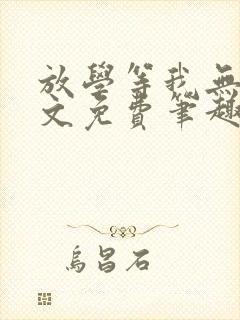 放學等我無
文免費筆趣
烏昌石